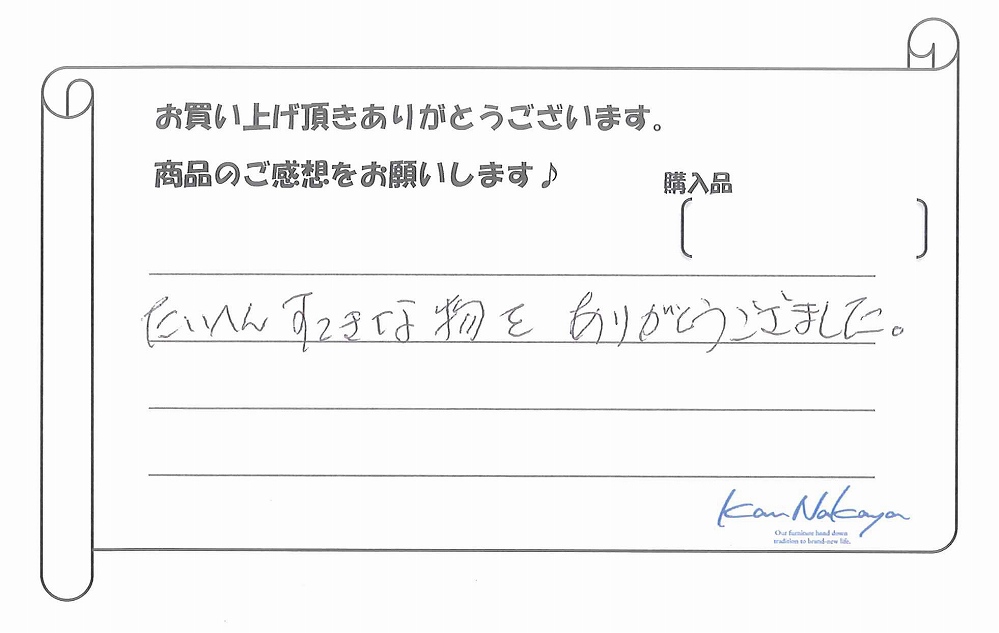 お買い上げ頂きありがとうございます。
商品のご感想をお願いします♪
購入品
たいへんすてきな物を ありがとうございました。
Kan Nakaya
Our furniture hand down
tradition to brand-new life.